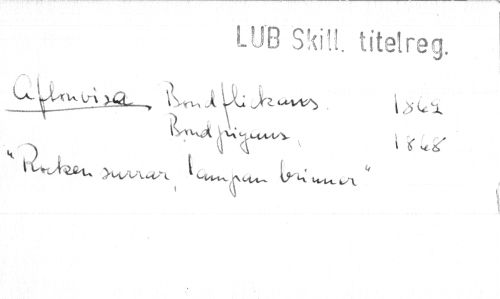 LUB Skill. titelreg.
Aftonvisa, Bondflickans. 1862
Bondpigans, 1868
"Rocken surrar, lampan brinner"